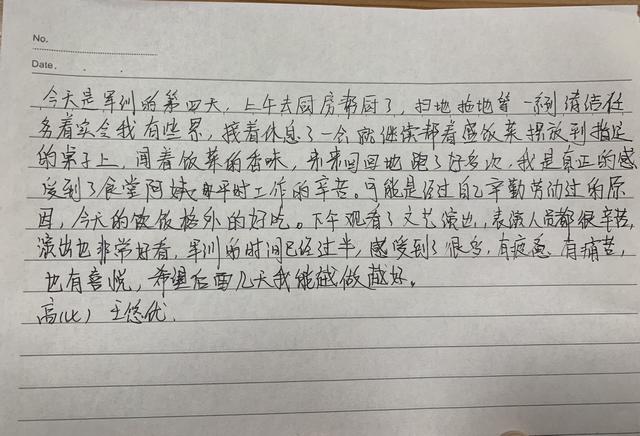 No.
Date.
今天是军训的第四天，上午去厨房帮厨了，扫地拖地等一系列清洁任
务着实令我有些累，接着休息了一会就继续帮着盛饭菜摆放到指定
的桌子上，闻着饭菜的香味，来来回回地跑了好多次，我是真正的感
受到了食堂阿姨平时工作的辛苦。可能是经过自己辛勤劳动过的原
因，今天的饭格外的好吃。下午观看了文艺演出，表演人员都很辛苦，
演出也非常好看，军训的时间已经过半，感受到了很多，有疲惫，有痛苦，
也有喜悦，希望后面几天我能越做越好。
高 王悠优